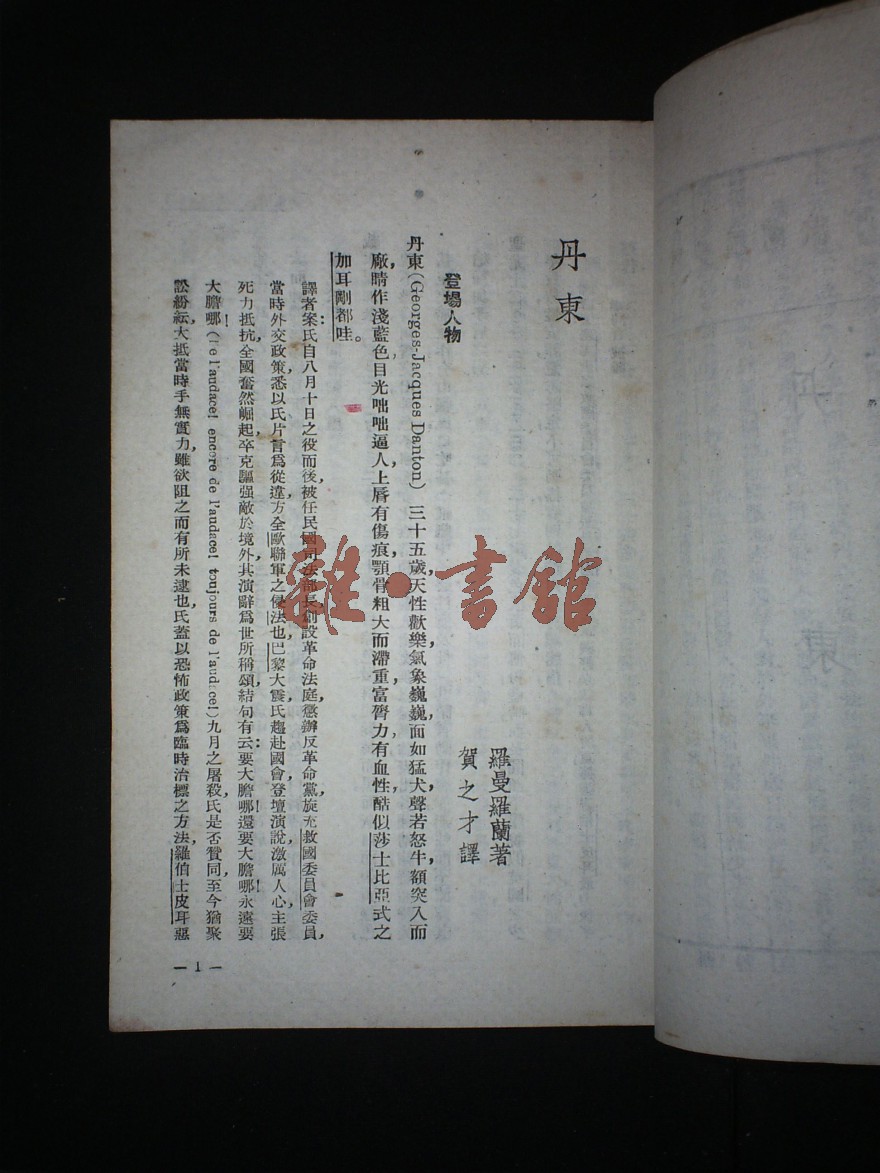 丹東
羅曼羅蘭著
賀之才譯
登場人物
丹東(Georges-Jacques Danton) 三十五歲,天性歡樂,氣象巍巍,面如猛犬,聲若怒牛,額突入而
廠,睛作淺藍色,目光咄咄逼人,上唇有傷痕,顎骨粗大而滯重,富膂力,有血性,酷似莎士比亞式之
加耳剛都哇。
譯者案:氏自八月十日之役而後,被任民國司法部長,創設革命法庭,懲辦反革命黨,旋充救國委員會委員,
當時外交政策,悉以氏片言為從違,方全歐聯軍之侵法也,巴黎大震,氏趨赴國會,登壇演說,激厲人心,主張
死力抵抗,全國奮然崛起,卒克驅强敵於境外,其演辭為世所稱頌,結句有云:要大膽哪!還要大膽哪!永遠要
大膽哪!(De l'audace! encore de l'audace! toujours de l'audace!)九月之屠殺,氏是否贊同,至今猶聚
訟紛紜,大抵當時手無實力,雖欲阻之而有所未逮也,氏蓋以恐怖政策為臨時治標之方法,羅伯士皮耳惡
— 1 —
雜·書館